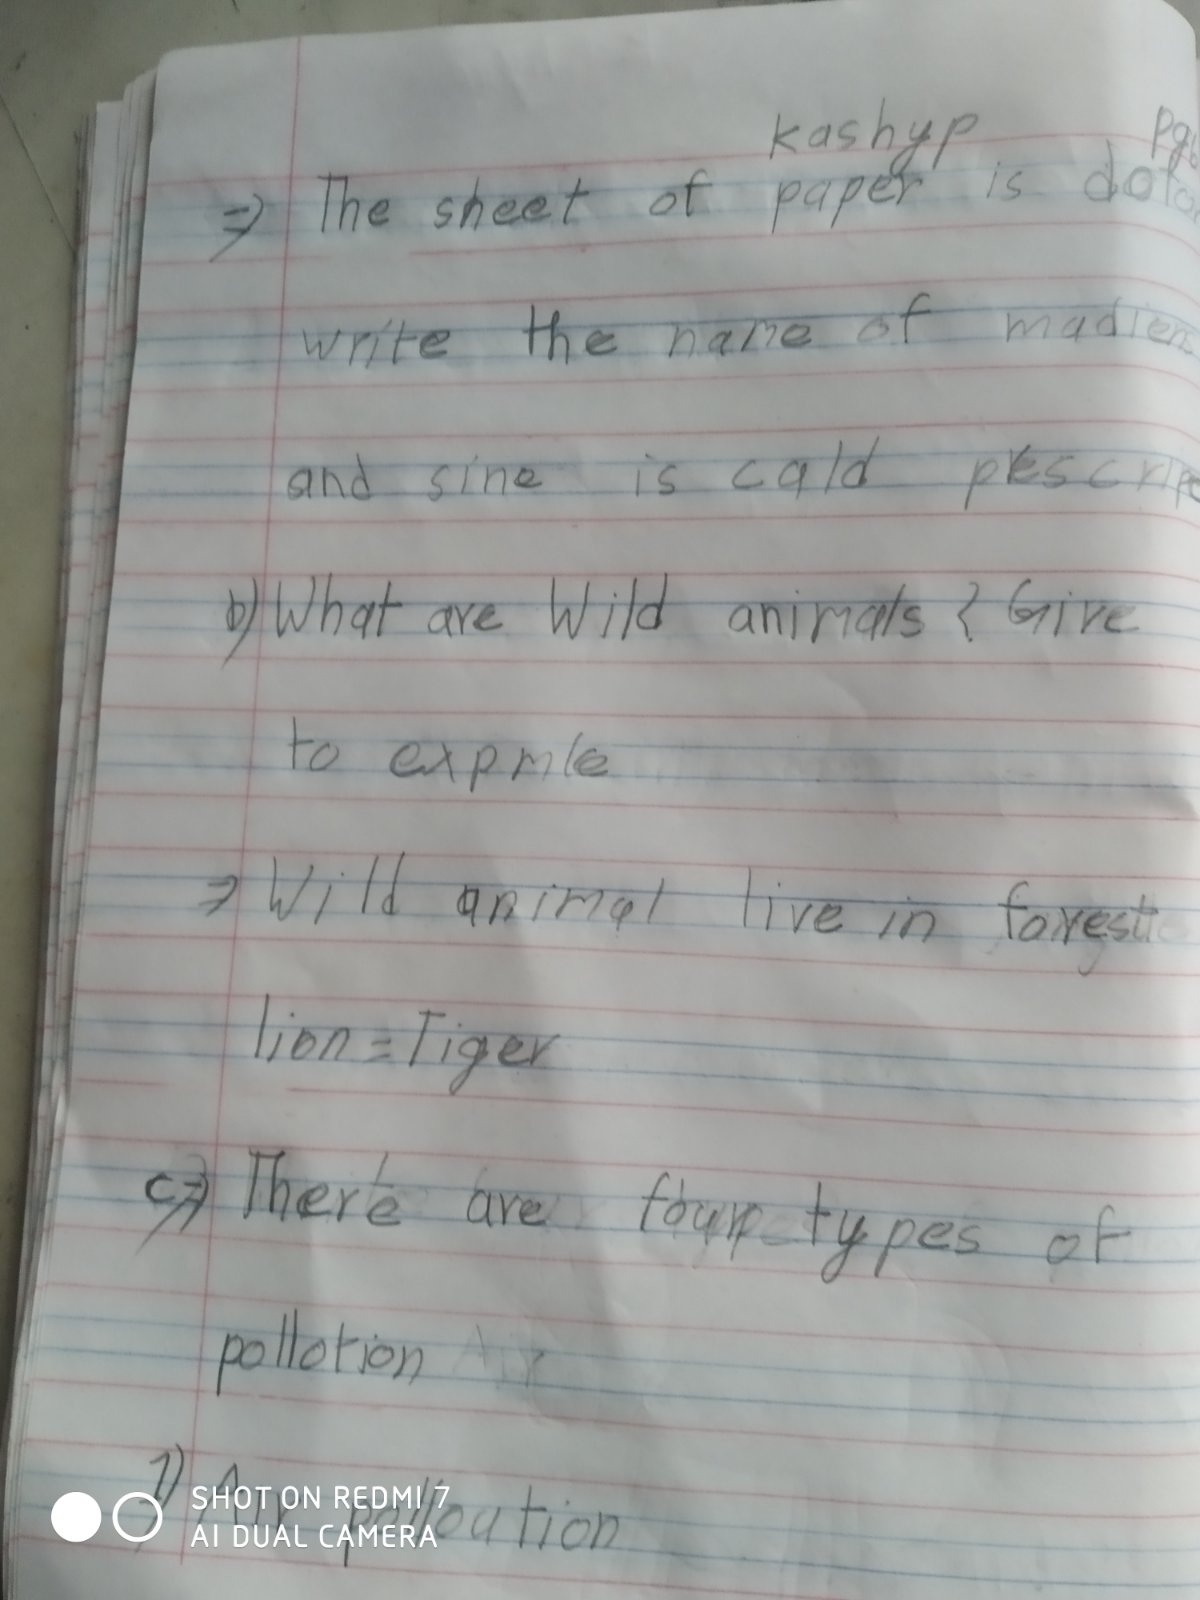 kashyp
=> The sheet of paper is
write the name of
and sine is cald
b) What are Wild animals ? Give
to expmle
=> Wild animal live in forest
lion = Tiger
c=> There are four types of
pollotion Air
1) Air polloution
SHOT ON REDMI 7
AI DUAL CAMERA